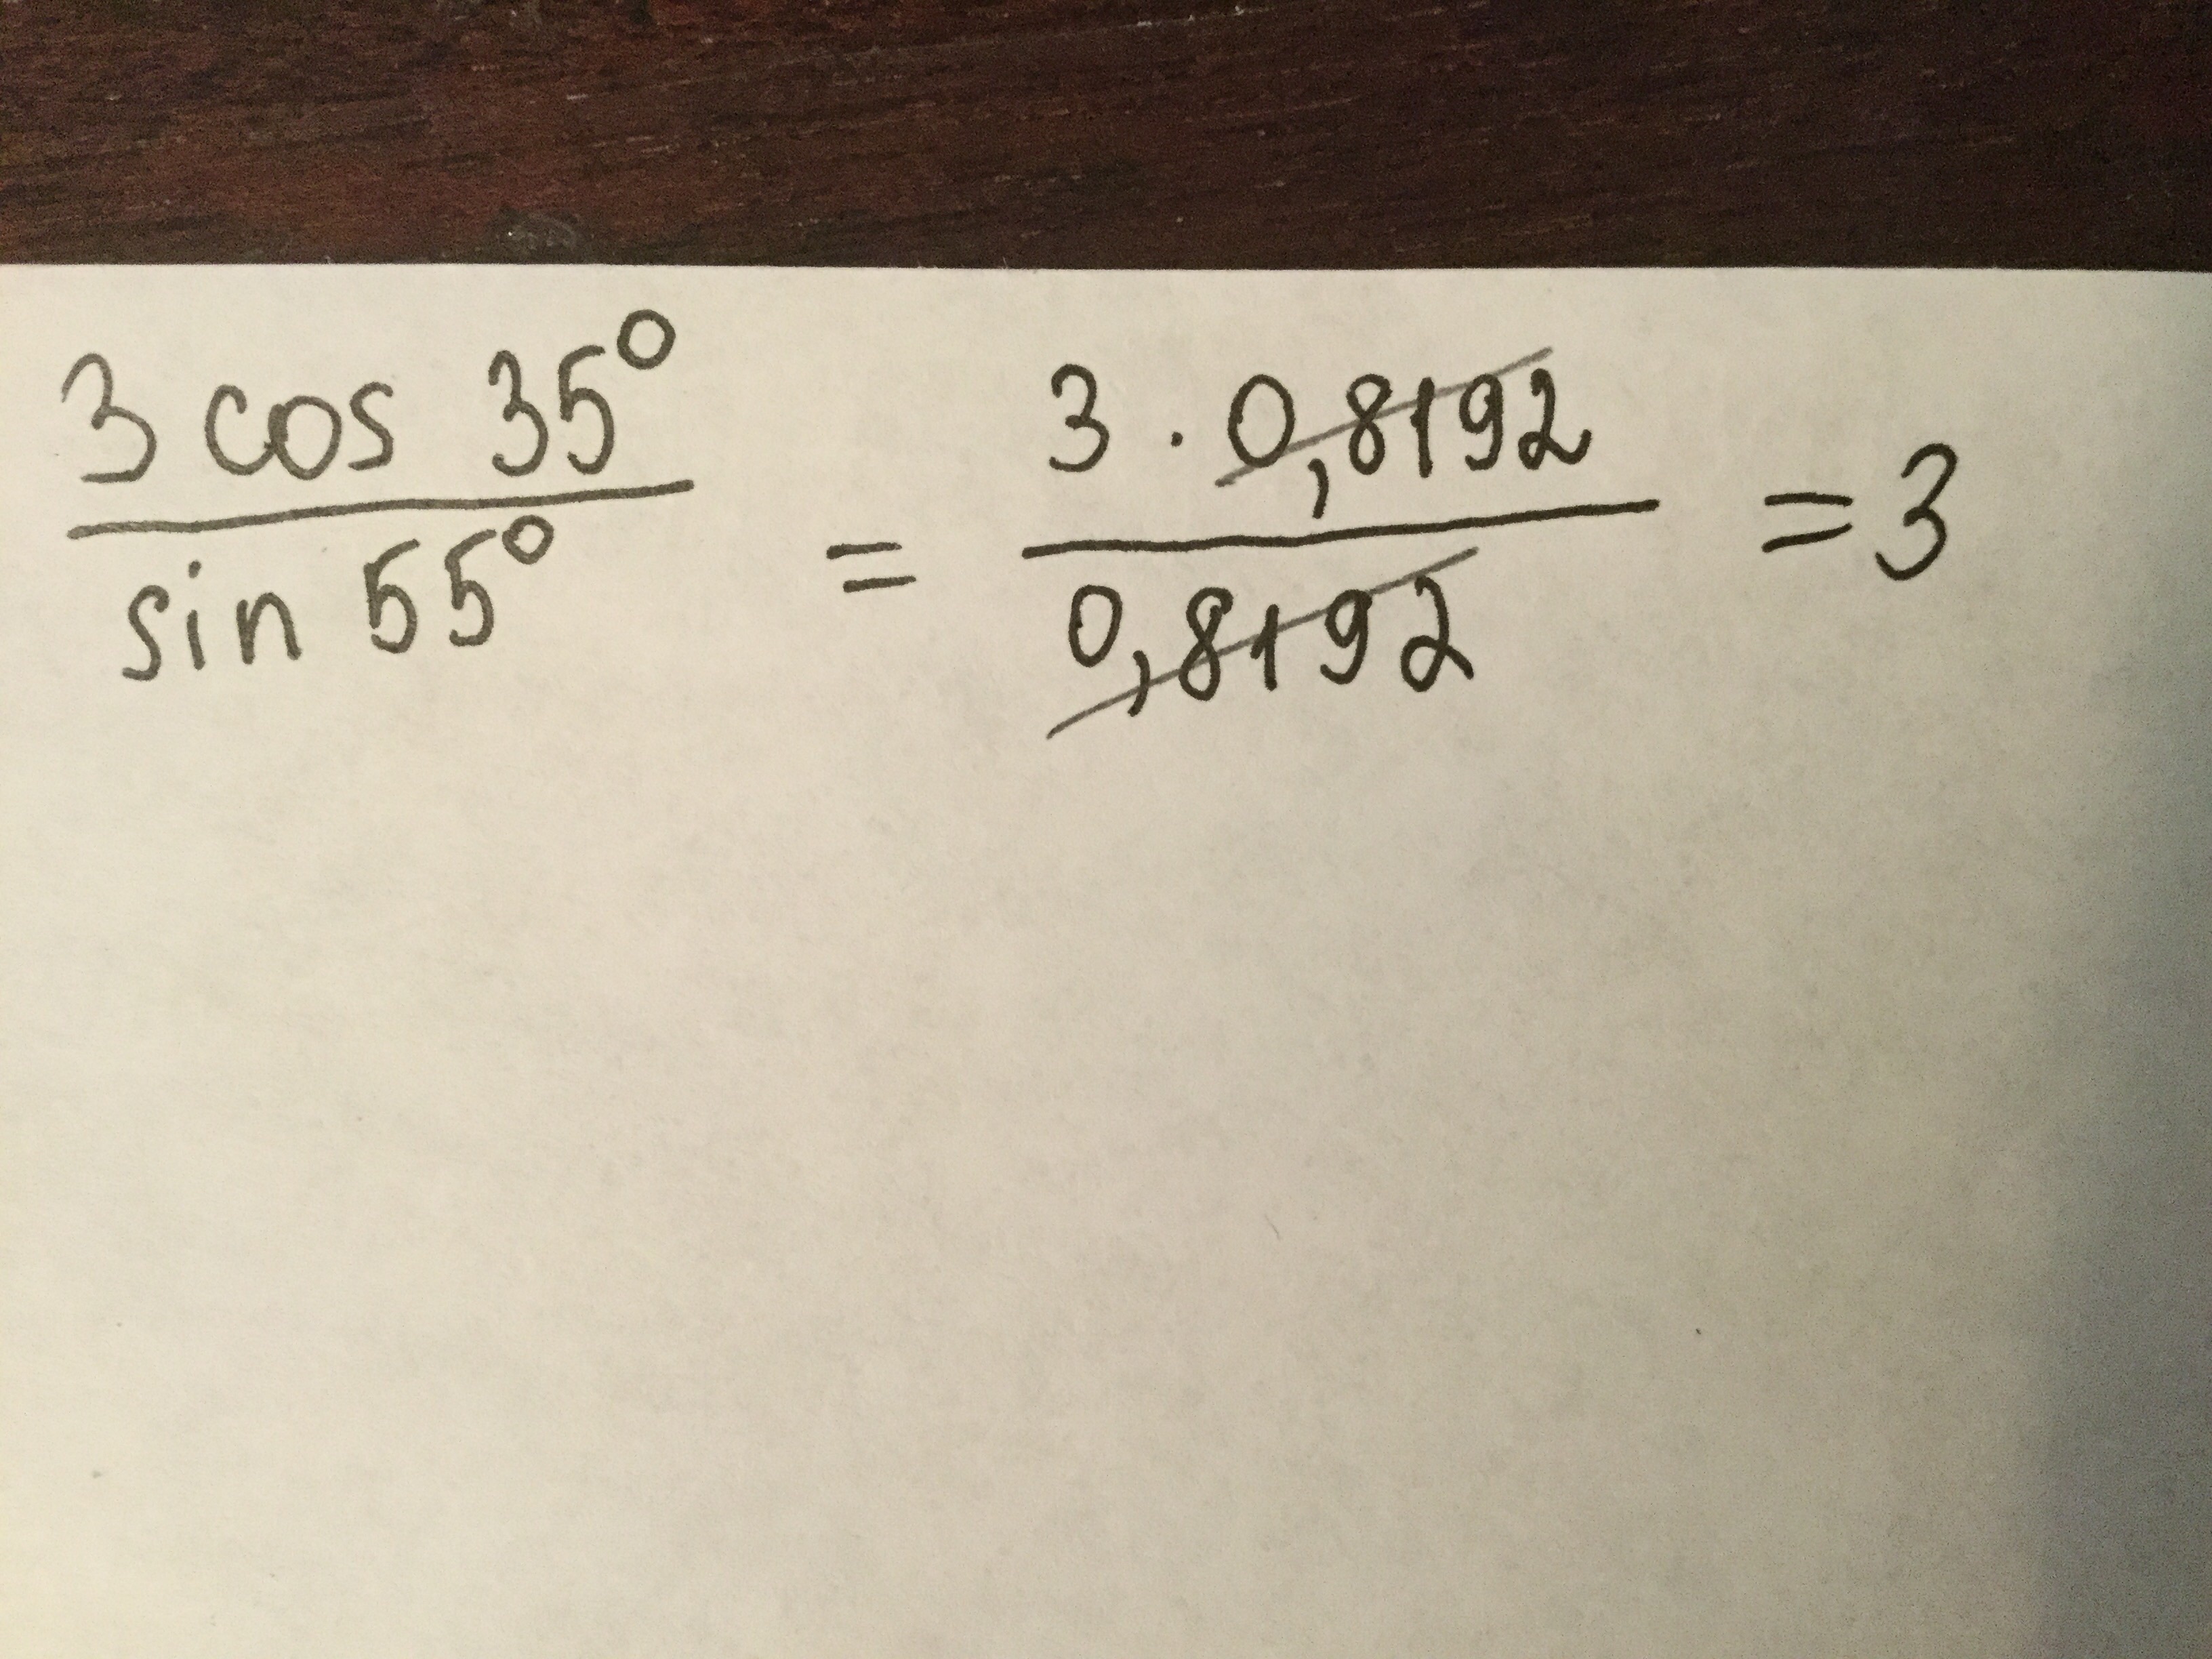 3 cos 35° / sin 55° = 3 · 0,8192 / 0,8192 = 3